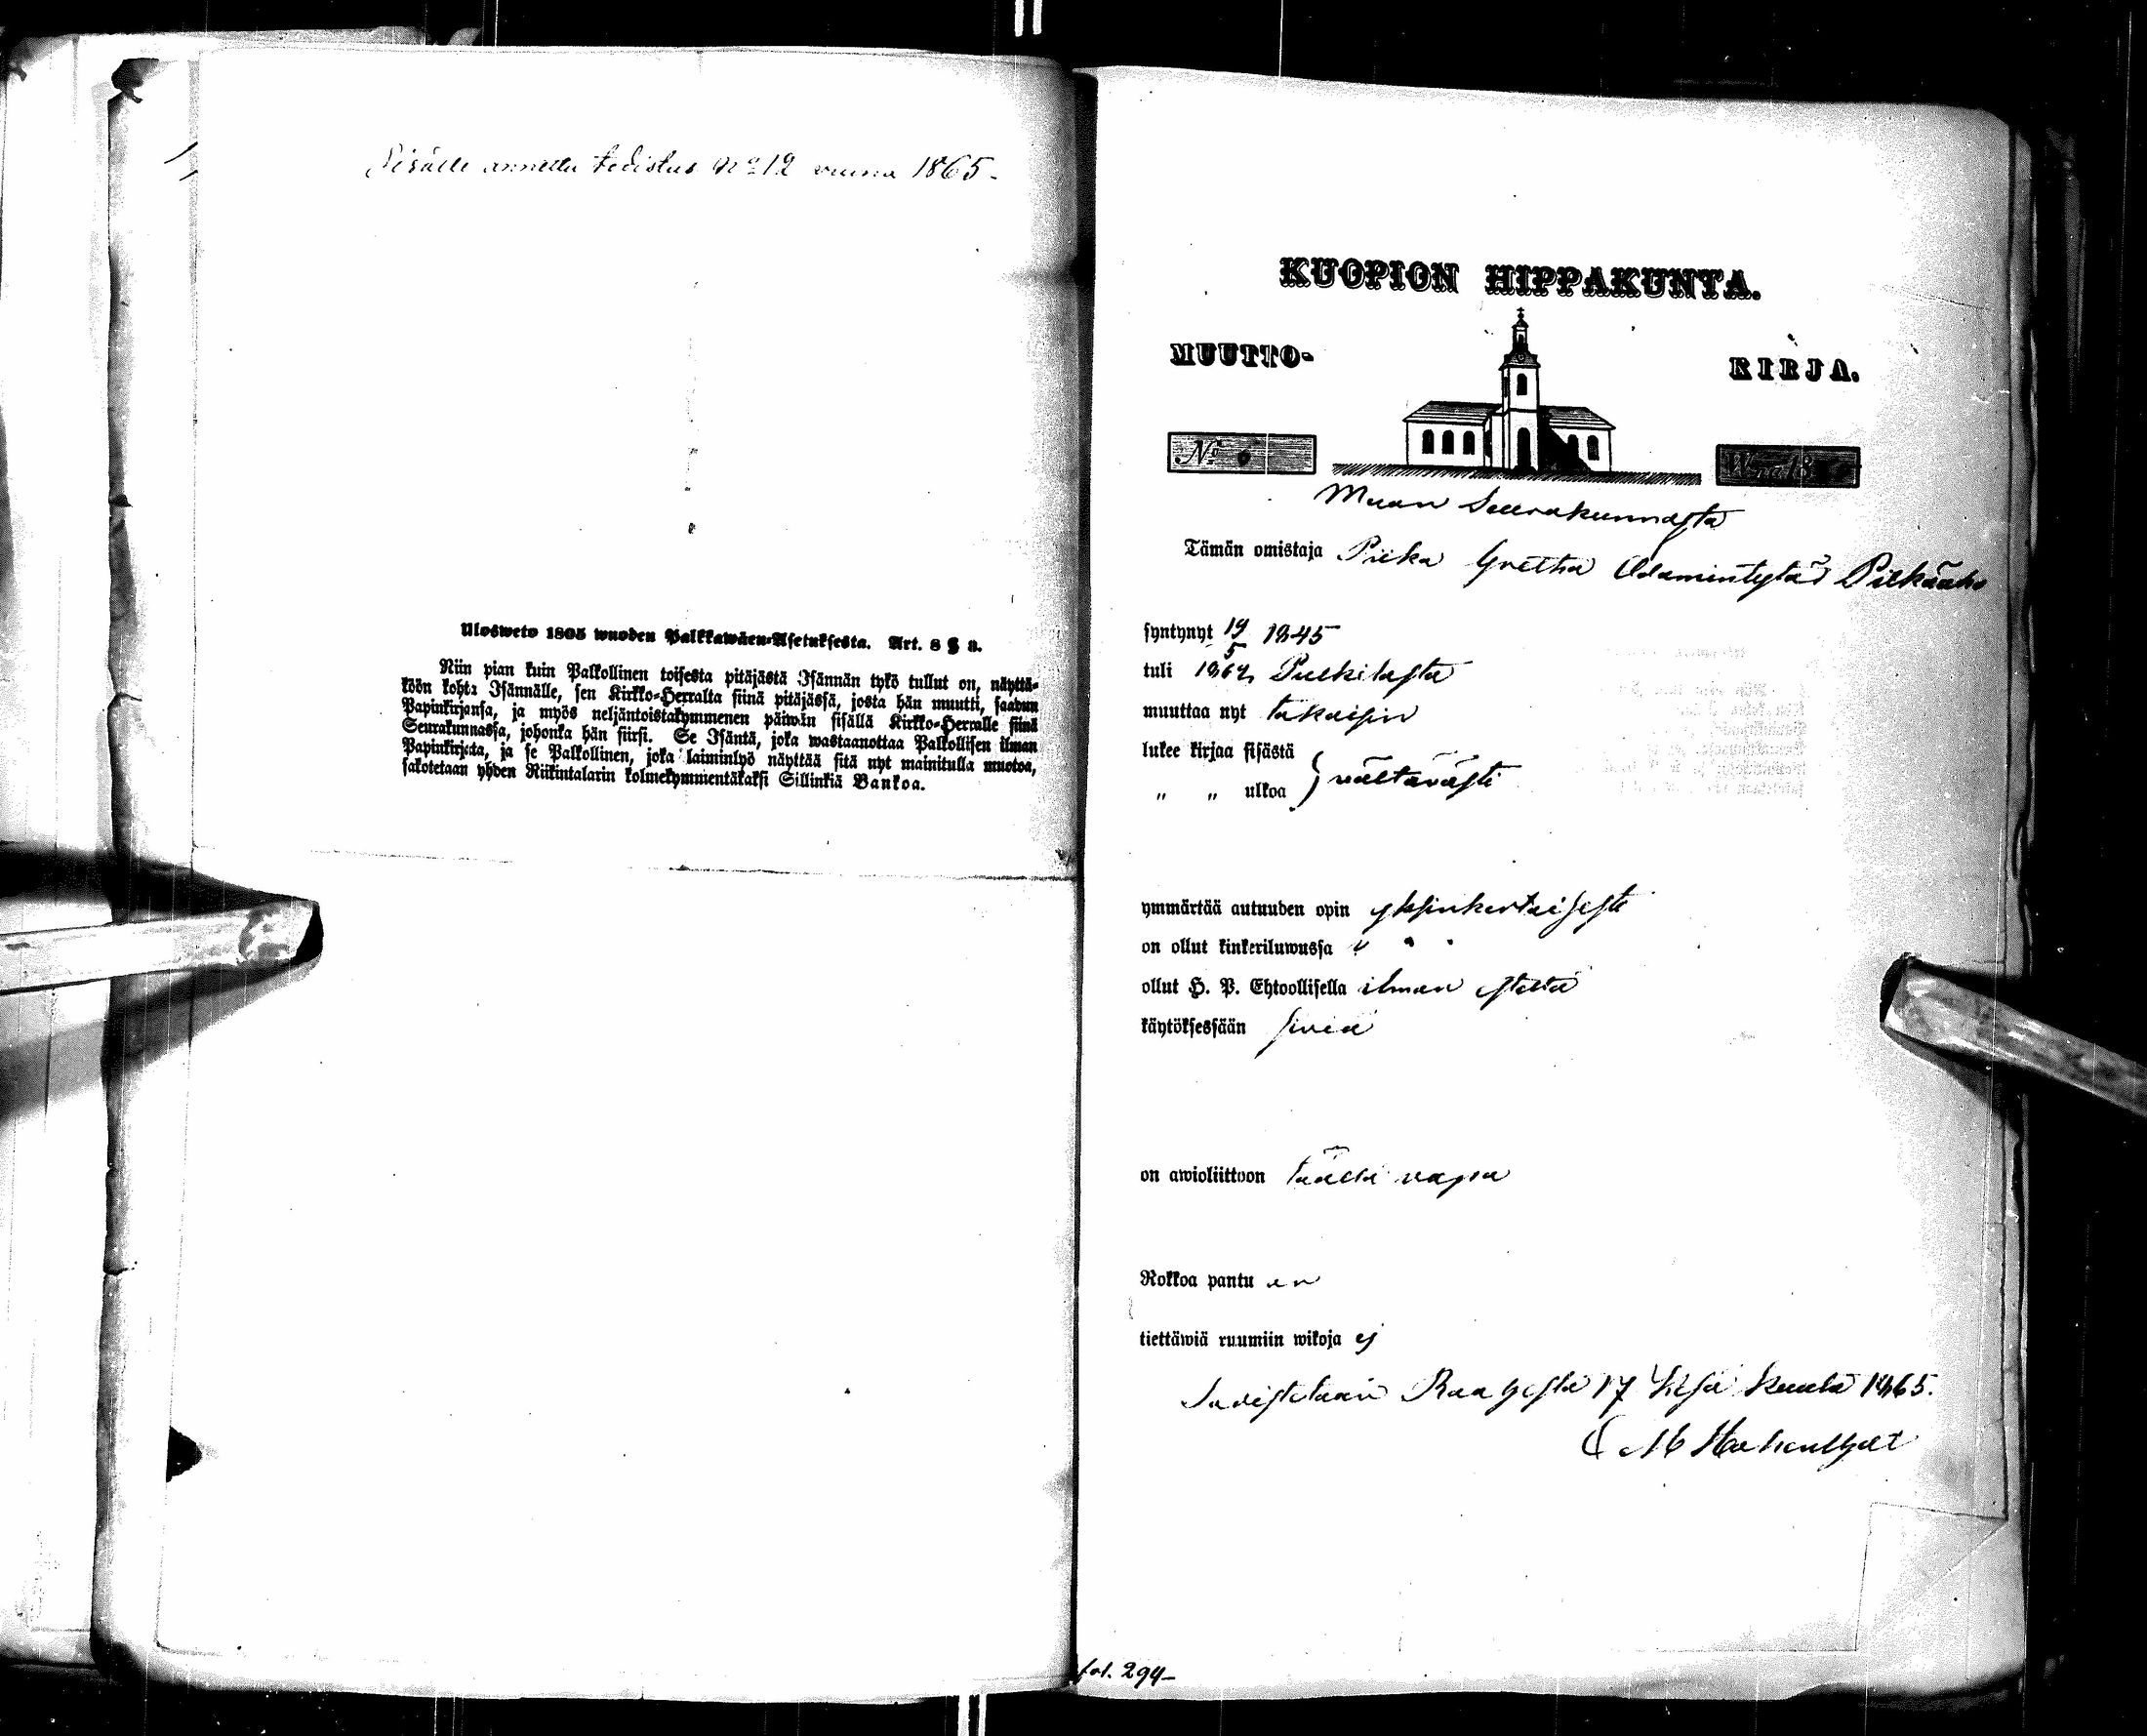 Sisälle annettu todistus No 12 vuona 1865-
Ulosweto 1805 wuoden Palkkawäen-Asetuksesta. Art. 8 § 3.
Niin pian kuin Palkollinen toisesta pitäjästä Isännän tykö tullut on, näyttä-
köön kohta Isännälle, sen Kirkko-Herralta siinä pitäjässä, josta hän muutti, saadun
Papinkirjansa, ja myös neljäntoistakymmenen päiwän sisällä Kirkko-Herralle siinä
Seurakunnassa, johonka hän siirsi. Se Isäntä, joka wastaanottaa Palkollisen ilman
Papinkirjata, ja se Palkollinen, joka laiminlyö näyttää sitä nyt mainitulla muotoa,
sakotetaan yhden Riikintalarin kolmekymmentäkaksi Sillinkiä Bankoa.
KUOPION HIPPAKUNTA.
MUUTTO- KIRJA.
No 6 W—na 18
Maan Seurakunnasta
Tämän omistaja Piika Gretha Adamintytär Pitkäaho
syntynyt 19/5 1845
tuli 1864 Pulkilasta
muuttaa nyt takaisin
lukee kirjaa sisästä
„ „ ulkoa } vältävästi
ymmärtää autuuden opin yksinkertaisesti
on ollut kinkeriluwussa „ „ „
ollut H. P. Ehtoollisella ilman estettä
käytöksessään siviä
on awioliittoon täällä vapa
Rokkoa pantu on
tiettäwiä ruumiin wikoja ej
Todistetaan Raahesta 17 Kesä kuuta 1865.
fol. 294-